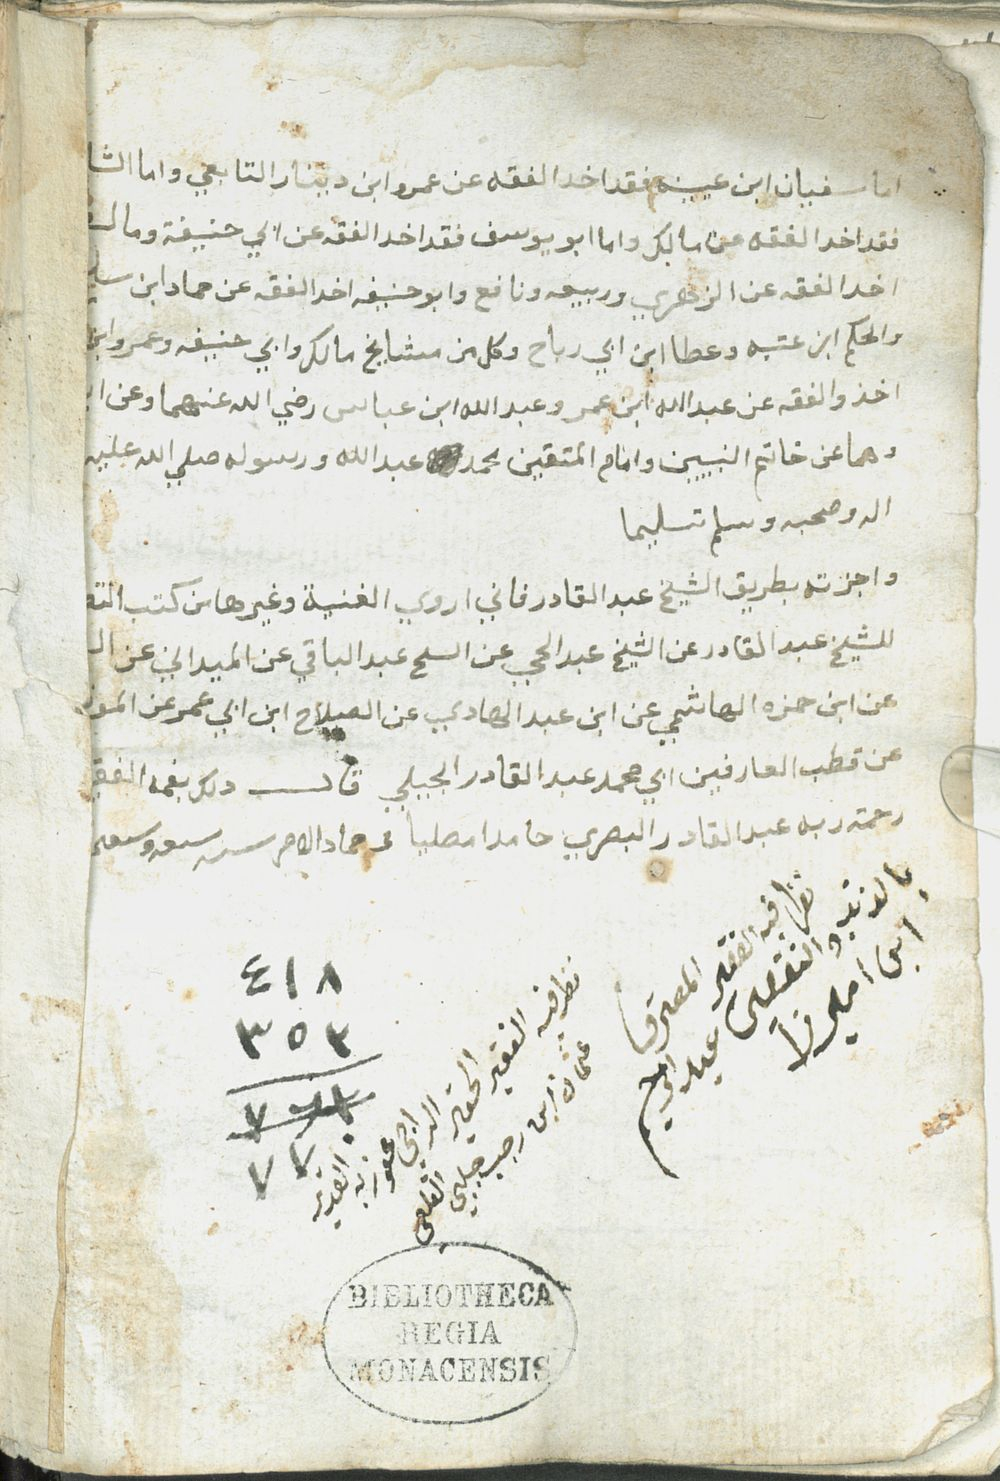 اما سفيان ابن عيينه فقد اخد الفقه عن عمرو ابن دينار التابعي واما الشا
فقد اخد الفقه عن مالك واما ابو يوسف فقد اخد الفقه عن ابي حنيفة ومالك
اخد الفقه عن الزهري وربيعه ونافع وابو حنيفه اخد الفقه عن حماد ابن سليـ
والحكم ابن عتبه وعطا ابن ابي رباح وكل من مشايخ مالك وابي حنيفه وعمرو ابن
اخذ والفقه عن عبد الله ابن عمر وعبد الله ابن عباس رضي الله عنهما وعن ا
وهما عن خاتم النبيين وامام المتقين محمد عبد الله ورسوله صلي الله عليه
اله وصحبه وسلم تسليما
واجزته بطريق الشيخ عبد القادر فاني اروي الغنية وغيرها من كتب
للشيخ عبد القادر عن الشيخ عبد الحي عن السح عبد الباقي عن الميداني عن
عن ابن حمزه الهاشمي عن ابن عبد الهادي عن الصلاح ابن ابي عمر عن
عن قطب العارفين ابي محمد عبد القادر الجيلي قال دلك بفمه الفقـ
رحمة ربه عبد القادر البصري حامدا مصليا سنه
نظر فيه الفقير المعترف
بالذنب والتقصير عبد
ابن امير
نظر فيه الفقير الحقير الراجي عفو ربه القدير
عثمان ابن رجب جلبي
٤١٨
٣٥٣
٧٧
BIBLIOTHECA
REGIA
MONACENSIS